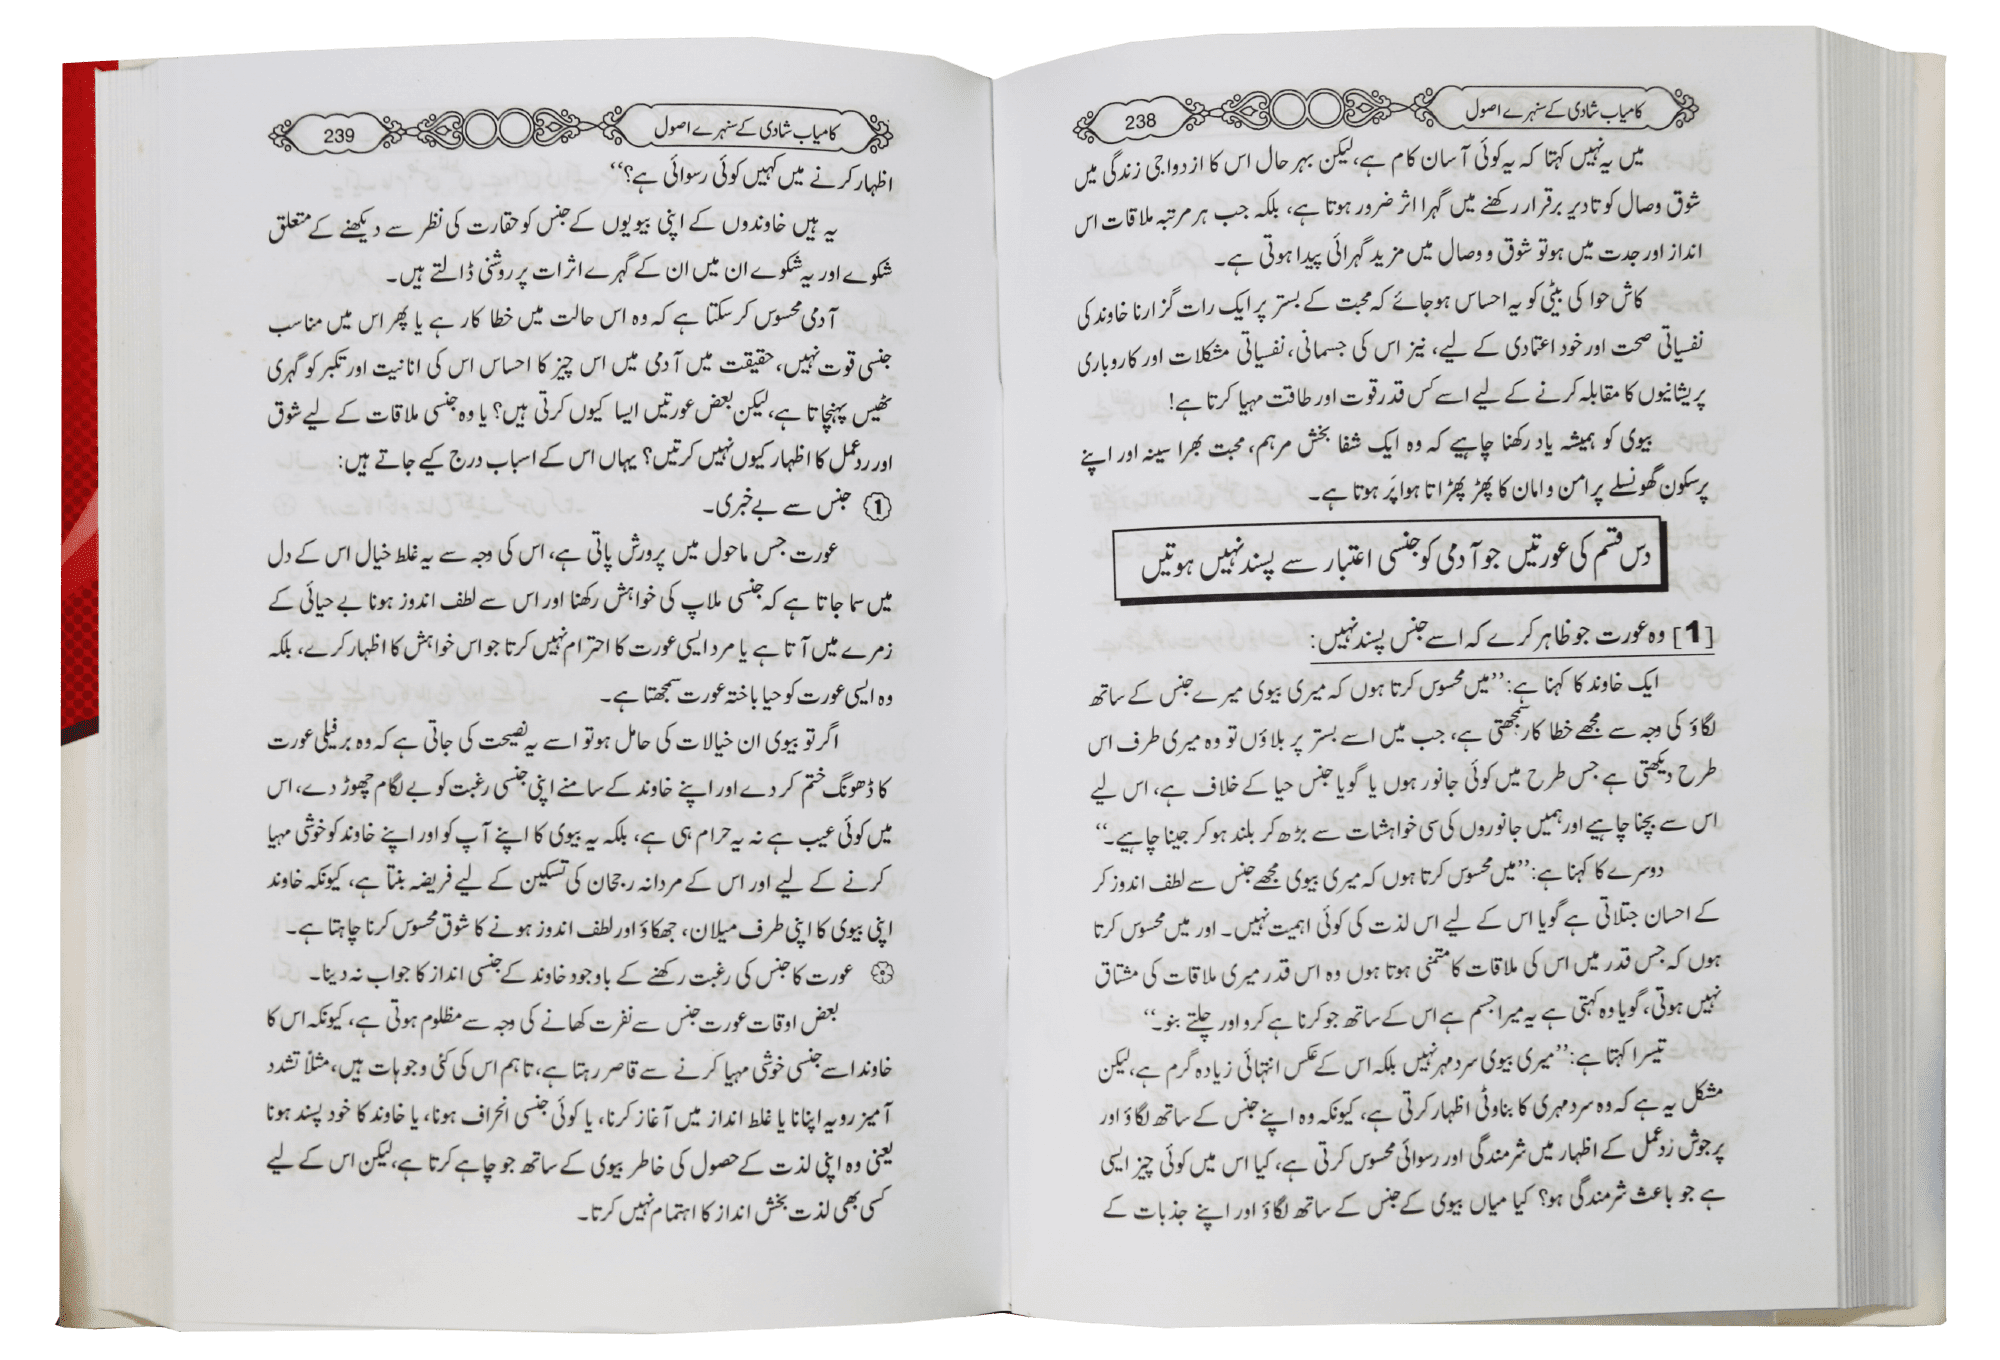 کامیاب شادی کے سنہرے اصول 238
میں یہ نہیں کہتا کہ یہ کوئی آسان کام ہے، لیکن بہر حال اس کا ازدواجی زندگی میں
شوق وصال کو تادیر برقرار رکھنے میں گہرا اثر ضرور ہوتا ہے، بلکہ جب ہر مرتبہ ملاقات اس
انداز اور جدت میں ہو تو شوق و وصال میں مزید گہرائی پیدا ہوتی ہے۔
کاش حوا کی بیٹی کو یہ احساس ہو جائے کہ محبت کے بستر پر ایک رات گزارنا خاوند کی
نفسیاتی صحت اور خود اعتمادی کے لیے، نیز اس کی جسمانی، نفسیاتی مشکلات اور کاروباری
پریشانیوں کا مقابلہ کرنے کے لیے اسے کس قدر قوت اور طاقت مہیا کرتا ہے!
بیوی کو ہمیشہ یاد رکھنا چاہیے کہ وہ ایک شفا بخش مرہم، محبت بھرا سینہ اور اپنے
پرسکون گھونسلے پر امن و امان کا پھڑ پھڑاتا ہوا پَر ہوتا ہے۔
دس قسم کی عورتیں جو آدمی کو جنسی اعتبار سے پسند نہیں ہوتیں
[1] وہ عورت جو ظاہر کرے کہ اسے جنس پسند نہیں:
ایک خاوند کا کہنا ہے: ’’میں محسوس کرتا ہوں کہ میری بیوی میرے جنس کے ساتھ
لگاؤ کی وجہ سے مجھے خطا کار سمجھتی ہے، جب میں اسے بستر پر بلاؤں تو وہ میری طرف اس
طرح دیکھتی ہے جس طرح میں کوئی جانور ہوں یا گویا جنس حیا کے خلاف ہے، اس لیے
اس سے بچنا چاہیے اور ہمیں جانوروں کی سی خواہشات سے بڑھ کر بلند ہو کر جینا چاہیے۔‘‘
دوسرے کا کہنا ہے: ’’میں محسوس کرتا ہوں کہ میری بیوی مجھے جنس سے لطف اندوز کر
کے احسان جتلاتی ہے گویا اس کے لیے اس لذت کی کوئی اہمیت نہیں۔ اور میں محسوس کرتا
ہوں کہ جس قدر میں اس کی ملاقات کا متمنی ہوتا ہوں وہ اس قدر میری ملاقات کی مشتاق
نہیں ہوتی، گویا وہ کہتی ہے یہ میرا جسم ہے اس کے ساتھ جو کرنا ہے کرو اور چلتے بنو۔‘‘
تیسرا کہتا ہے: ’’میری بیوی سرد مہر نہیں بلکہ اس کے عکس انتہائی زیادہ گرم ہے، لیکن
مشکل یہ ہے کہ وہ سرد مہری کا بناوٹی اظہار کرتی ہے، کیونکہ وہ اپنے جنس کے ساتھ لگاؤ اور
پرجوش ردِعمل کے اظہار میں شرمندگی اور رسوائی محسوس کرتی ہے، کیا اس میں کوئی چیز ایسی
ہے جو باعث شرمندگی ہو؟ کیا میاں بیوی کے جنس کے ساتھ لگاؤ اور اپنے جذبات کے
کامیاب شادی کے سنہرے اصول 239
اظہار کرنے میں کہیں کوئی رسوائی ہے؟‘‘
یہ ہیں خاوندوں کے اپنی بیویوں کے جنس کو حقارت کی نظر سے دیکھنے کے متعلق
شکوے اور یہ شکوے ان میں ان کے گہرے اثرات پر روشنی ڈالتے ہیں۔
آدمی محسوس کر سکتا ہے کہ وہ اس حالت میں خطا کار ہے یا پھر اس میں مناسب
جنسی قوت نہیں، حقیقت میں آدمی میں اس چیز کا احساس اس کی انانیت اور تکبر کو گہری
ٹھیس پہنچاتا ہے، لیکن بعض عورتیں ایسا کیوں کرتی ہیں؟ یا وہ جنسی ملاقات کے لیے شوق
اور ردعمل کا اظہار کیوں نہیں کرتیں؟ یہاں اس کے اسباب درج کیے جاتے ہیں:
1 جنس سے بے خبری۔
عورت جس ماحول میں پرورش پاتی ہے، اس کی وجہ سے یہ غلط خیال اس کے دل
میں سما جاتا ہے کہ جنسی ملاپ کی خواہش رکھنا اور اس سے لطف اندوز ہونا بے حیائی کے
زمرے میں آتا ہے یا مرد ایسی عورت کا احترام نہیں کرتا جو اس خواہش کا اظہار کرے، بلکہ
وہ ایسی عورت کو حیا باختہ عورت سمجھتا ہے۔
اگر تو بیوی ان خیالات کی حامل ہو تو اسے یہ نصیحت کی جاتی ہے کہ وہ برفیلی عورت
کا ڈھونگ ختم کر دے اور اپنے خاوند کے سامنے اپنی جنسی رغبت کو بے لگام چھوڑ دے، اس
میں کوئی عیب ہے نہ یہ حرام ہی ہے، بلکہ یہ بیوی کا اپنے آپ کو اور اپنے خاوند کو خوشی مہیا
کرنے کے لیے اور اس کے مردانہ رجحان کی تسکین کے لیے فریضہ بنتا ہے، کیونکہ خاوند
اپنی بیوی کا اپنی طرف میلان، جھکاؤ اور لطف اندوز ہونے کا شوق محسوس کرنا چاہتا ہے۔
عورت کا جنس کی رغبت رکھنے کے باوجود خاوند کے جنسی انداز کا جواب نہ دینا۔
بعض اوقات عورت جنس سے نفرت کھانے کی وجہ سے مظلوم ہوتی ہے، کیونکہ اس کا
خاوند اسے جنسی خوشی مہیا کرنے سے قاصر رہتا ہے، تاہم اس کی کئی وجوہات ہیں، مثلاً تشدد
آمیز رویہ اپنانا یا غلط انداز میں آغاز کرنا، یا کوئی جنسی انحراف ہونا، یا خاوند کا خود پسند ہونا
یعنی وہ اپنی لذت کے حصول کی خاطر بیوی کے ساتھ جو چاہے کرتا ہے، لیکن اس کے لیے
کسی بھی لذت بخش انداز کا اہتمام نہیں کرتا۔